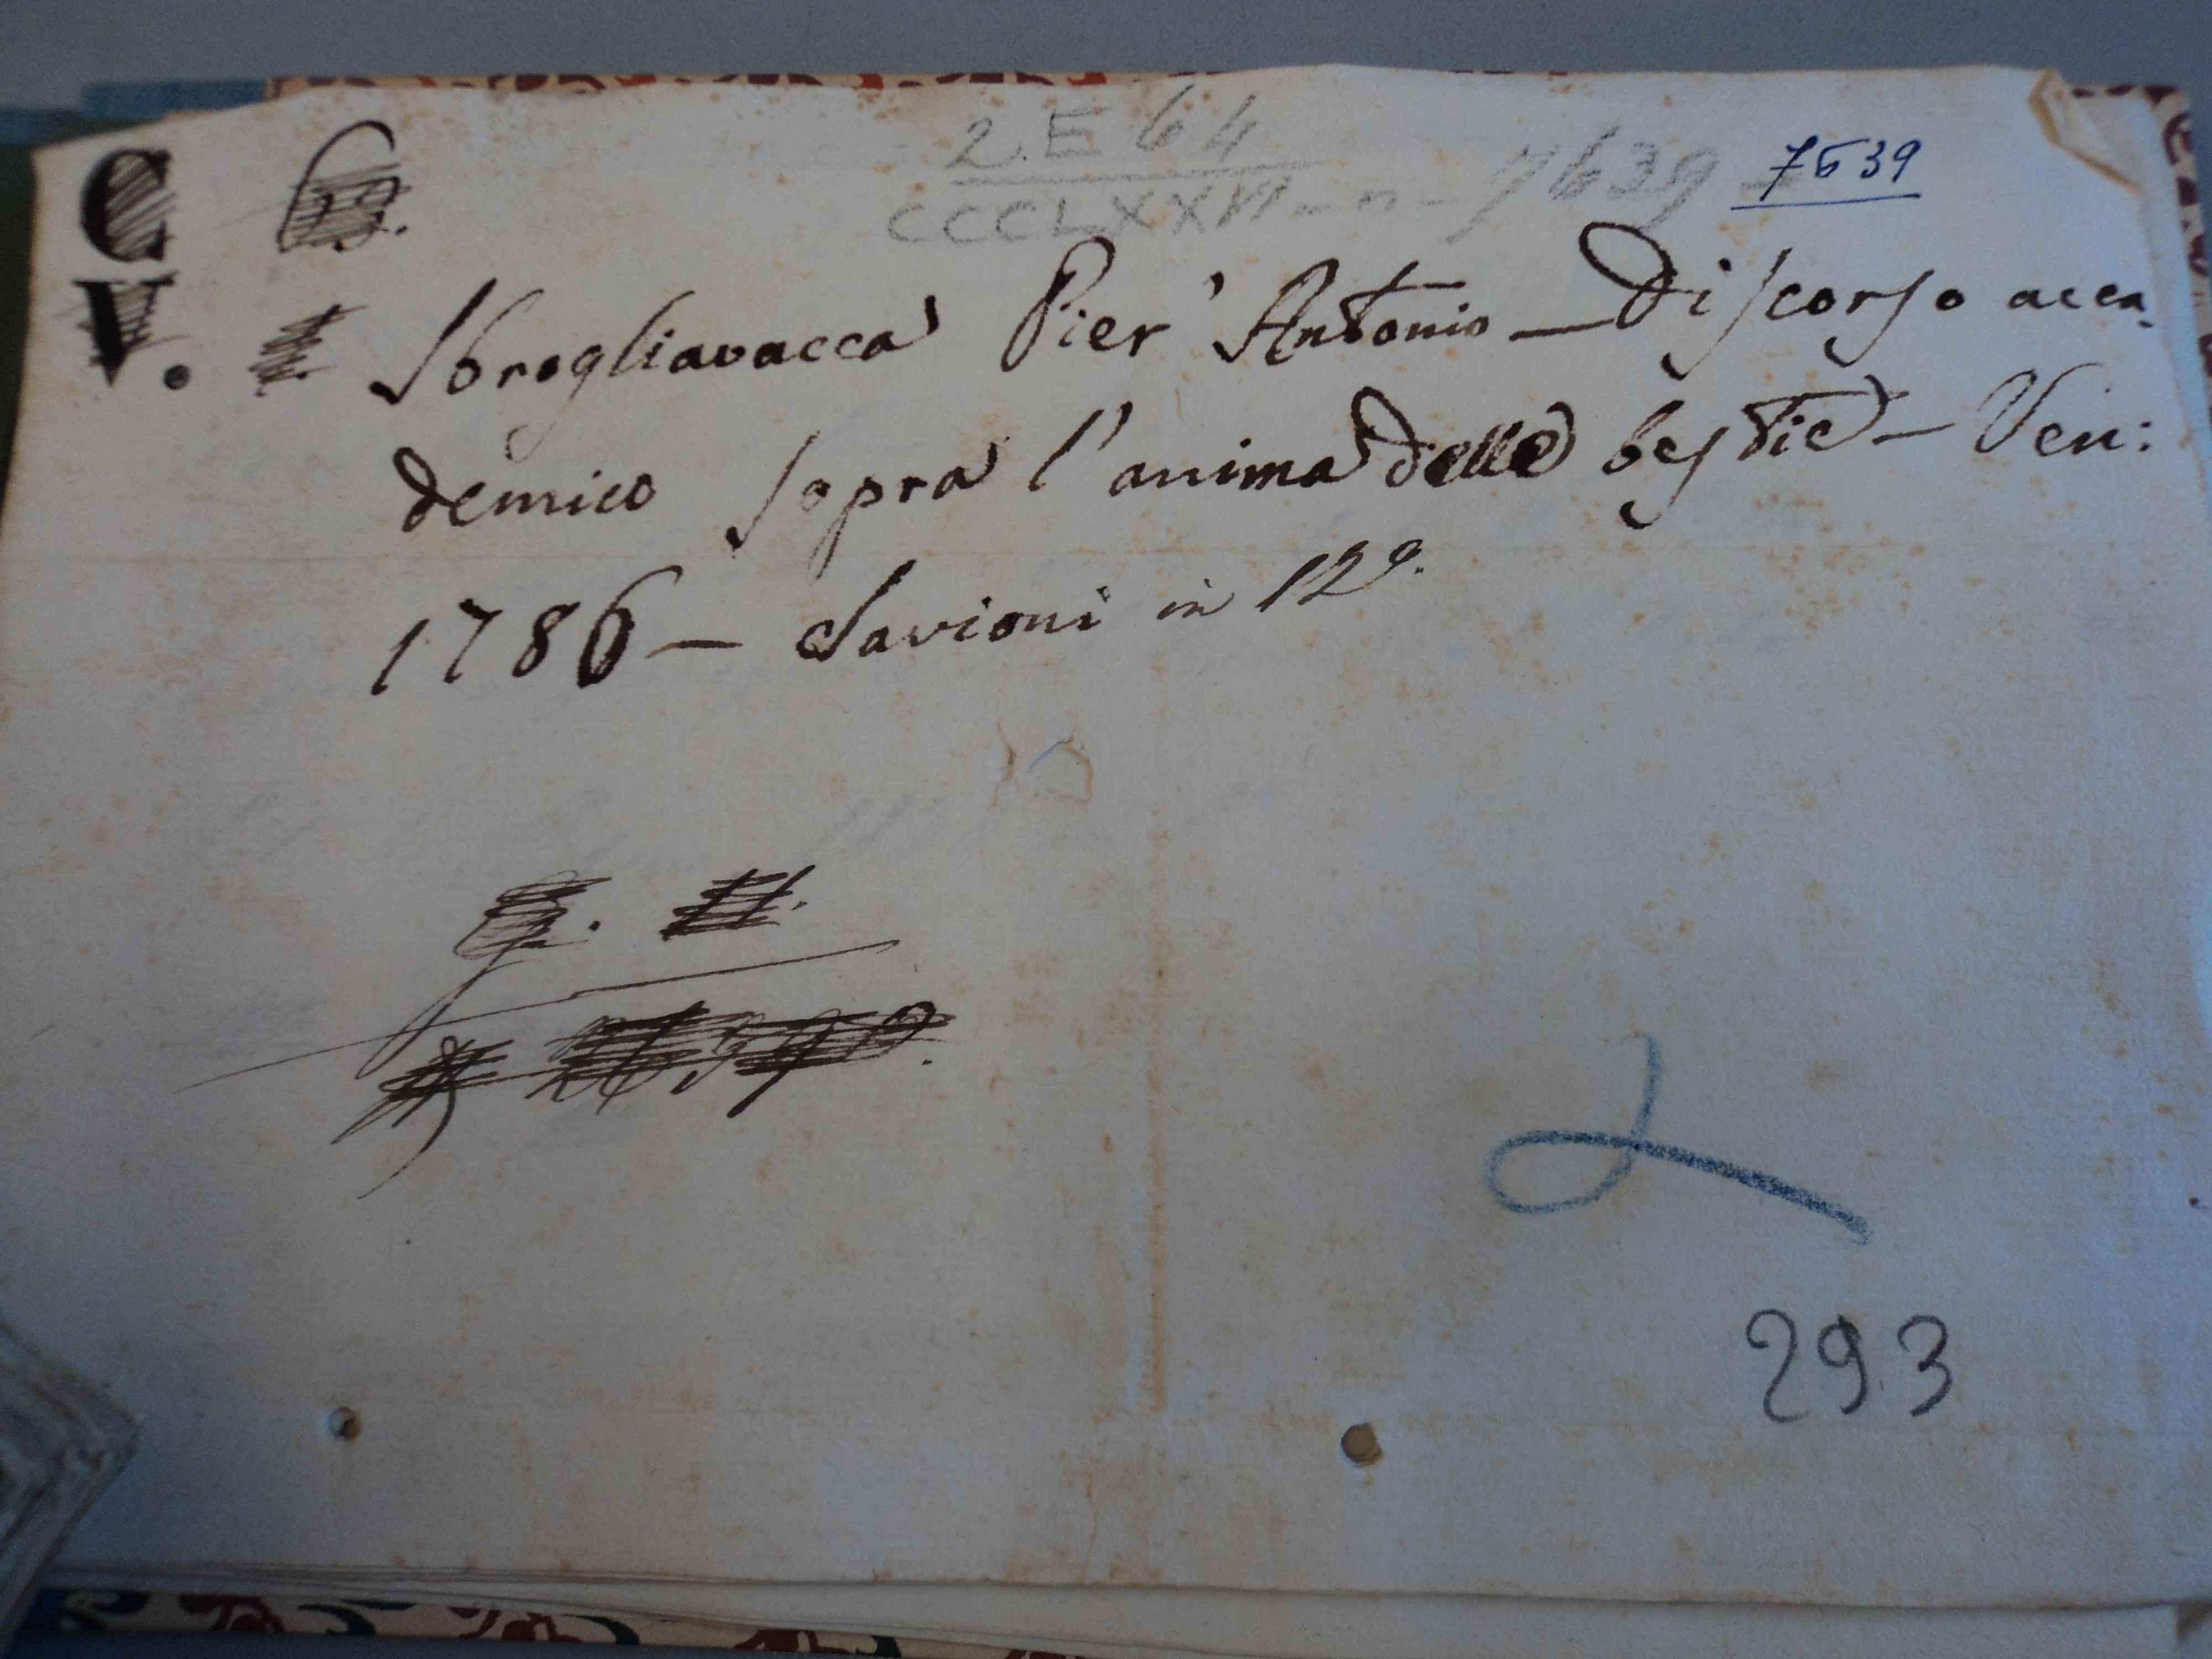 2.E 64
CCCLXXVI - n - 7639
7639
C
V.
Sbrogliavacca Pier' Antonio — Discorso acca-
demico sopra l'anima delle bestie — Ven:
1786 — Savioni in 12º.
293